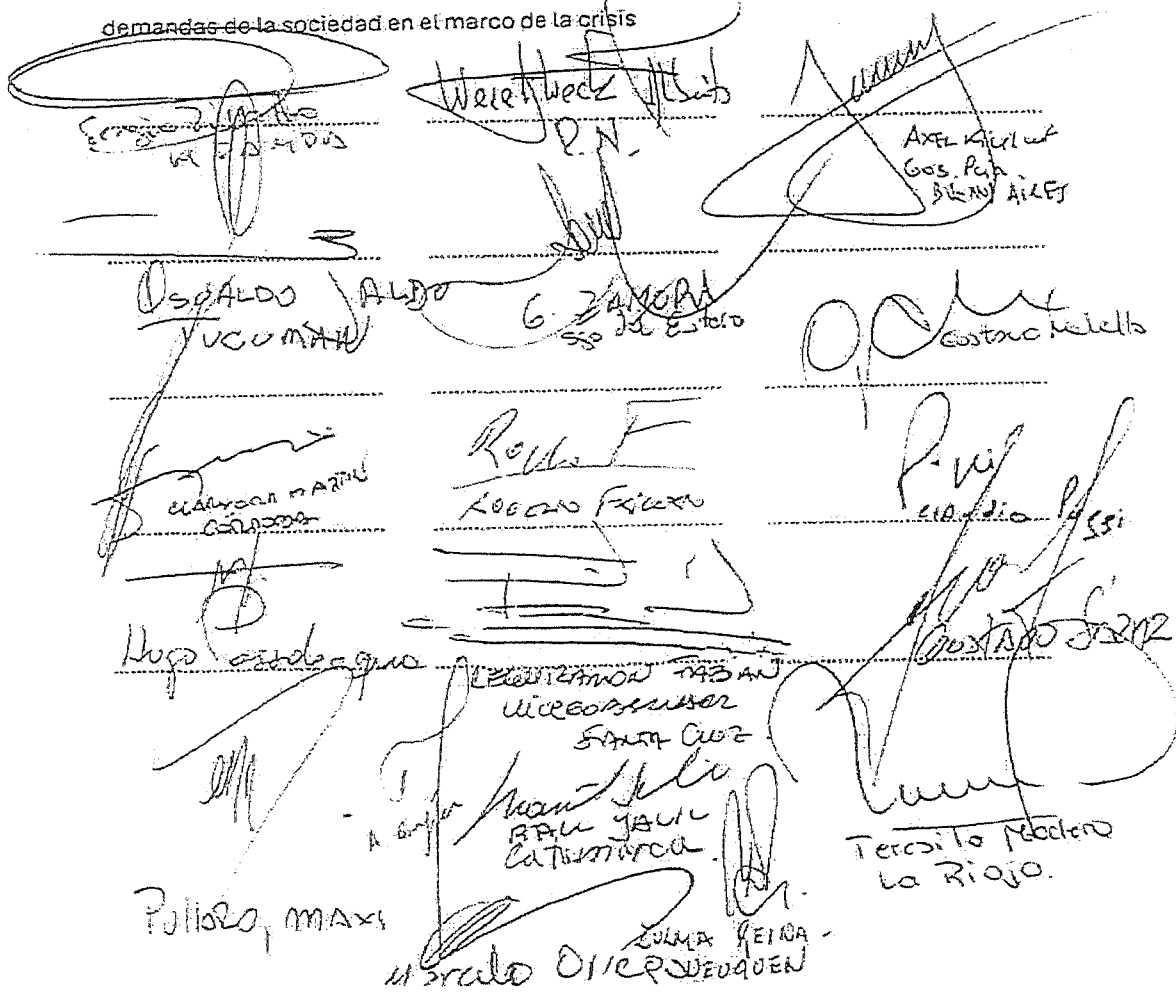 demandas de la sociedad en el marco de la crisis
Weretilneck Alberto
R.N.
AXEL Kicillof
Gob. Pcia.
BUENOS AIRES
OSVALDO JALDO
TUCUMAN
G. ZAMORA
Sgo del Estero
Gustavo Melella
LLARYORA MARTIN
CORDOBA
ROGELIO FRIGERIO
Claudio Poggi
Hugo Passalacqua
LEGUIZAMON FABIAN
VICEGOBERNADOR
SANTA CRUZ
GUSTAVO SAENZ
RAUL JALIL
Catamarca
Teresita Madera
La Rioja.
Pullaro, MAXI
ZULMA REINA -
Marcelo Orrego NEUQUEN